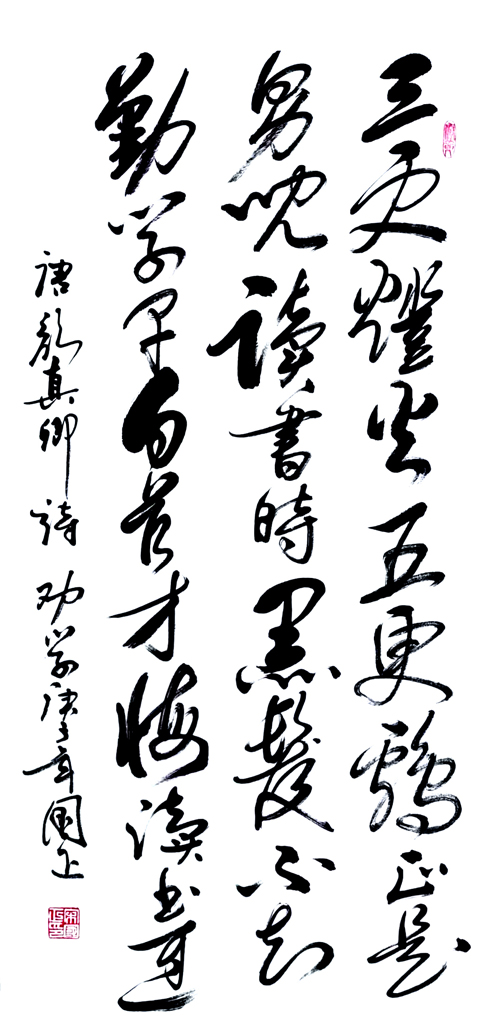 三更燈火五更鷄正是
男兒讀書時黑髮不知
勤學早白首才悔讀書遲
唐顏真卿詩 劝學庚子年國正